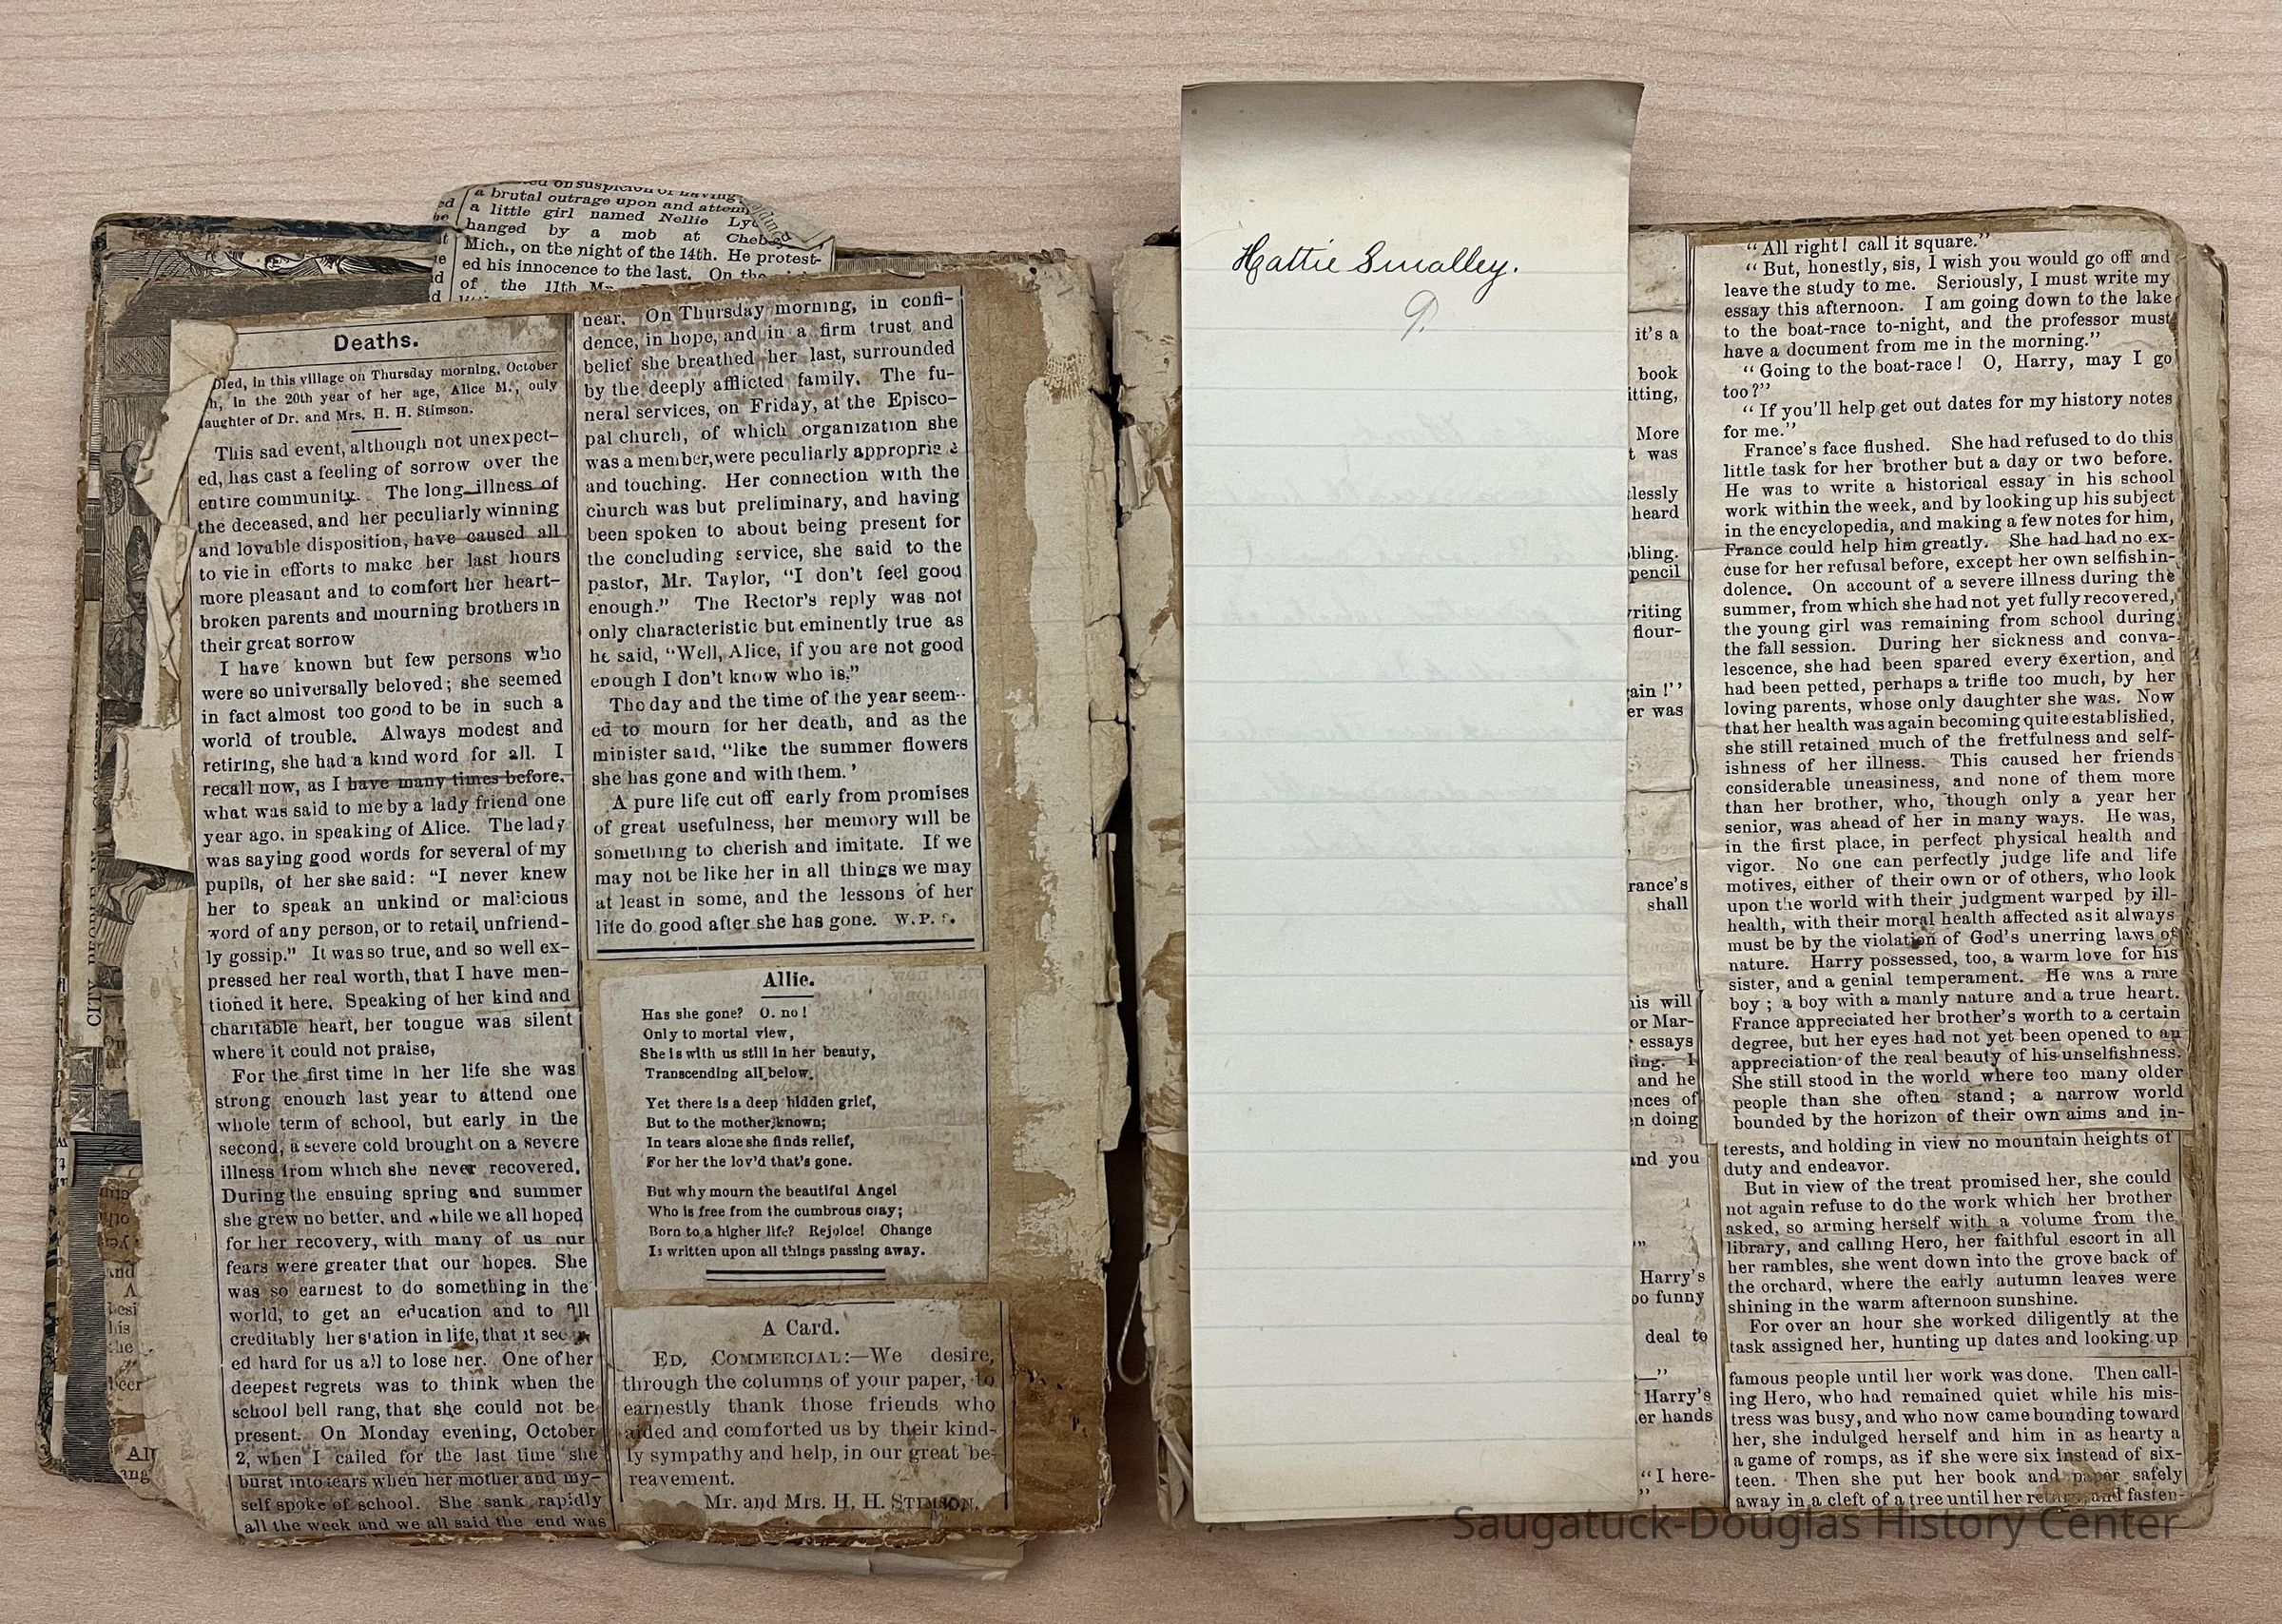 a brutal outrage upon and
a little girl named Nellie
hanged by a mob at
Mich., on the night of the 14th. He protest-
ed his innocence to the last. On the
of the 11th
Deaths.
Died, in this village on Thursday morning, October
in the 20th year of her age, Alice M., only
daughter of Dr. and Mrs. H. H. Stimson.
This sad event, although not unexpect-
ed, has cast a feeling of sorrow over the
entire community. The long illness of
the deceased, and her peculiarly winning
and lovable disposition, have caused all
to vie in efforts to make her last hours
more pleasant and to comfort her heart-
broken parents and mourning brothers in
their great sorrow
I have known but few persons who
were so universally beloved; she seemed
in fact almost too good to be in such a
world of trouble. Always modest and
retiring, she had a kind word for all. I
recall now, as I have many times before,
what was said to me by a lady friend one
year ago, in speaking of Alice. The lady
was saying good words for several of my
pupils, of her she said: "I never knew
her to speak an unkind or malicious
word of any person, or to retail unfriend-
ly gossip." It was so true, and so well ex-
pressed her real worth, that I have men-
tioned it here. Speaking of her kind and
charitable heart, her tongue was silent
where it could not praise,
For the first time in her life she was
strong enough last year to attend one
whole term of school, but early in the
second, a severe cold brought on a severe
illness from which she never recovered.
During the ensuing spring and summer
she grew no better, and while we all hoped
for her recovery, with many of us our
fears were greater that our hopes. She
was so earnest to do something in the
world, to get an education and to fill
creditably her station in life, that it seem-
ed hard for us all to lose her. One of her
deepest regrets was to think when the
school bell rang, that she could not be
present. On Monday evening, October
2, when I called for the last time she
burst into tears when her mother and my-
self spoke of school. She sank rapidly
all the week and we all said the end was
near. On Thursday morning, in confi-
dence, in hope, and in a firm trust and
belief she breathed her last, surrounded
by the deeply afflicted family. The fu-
neral services, on Friday, at the Episco-
pal church, of which organization she
was a member, were peculiarly appropriate
and touching. Her connection with the
church was but preliminary, and having
been spoken to about being present for
the concluding service, she said to the
pastor, Mr. Taylor, "I don't feel good
enough." The Rector's reply was not
only characteristic but eminently true as
he said, "Well, Alice, if you are not good
enough I don't know who is."
The day and the time of the year seem-
ed to mourn for her death, and as the
minister said, "like the summer flowers
she has gone and with them.'
A pure life cut off early from promises
of great usefulness, her memory will be
something to cherish and imitate. If we
may not be like her in all things we may
at least in some, and the lessons of her
life do good after she has gone. W. P.
Allie.
Has she gone? O. no!
Only to mortal view,
She is with us still in her beauty,
Transcending all below.
Yet there is a deep hidden grief,
But to the mother known;
In tears alone she finds relief,
For her the lov'd that's gone.
But why mourn the beautiful Angel
Who is free from the cumbrous clay;
Born to a higher life? Rejoice! Change
Is written upon all things passing away.
A Card.
ED. COMMERCIAL:—We desire,
through the columns of your paper, to
earnestly thank those friends who
aided and comforted us by their kind-
ly sympathy and help, in our great be-
reavement.
Mr. and Mrs. H. H. STIMSON.
CITY PEOPLE
Hattie Smalley.
9.
it's a
book
itting,
More
was
heard
pencil
writing
flour-
er was
rance's
shall
his will
or Mar-
essays
ing. I
and he
nces of
n doing
and you
Harry's
oo funny
deal to
Harry's
er hands
"I here-
"All right! call it square."
"But, honestly, sis, I wish you would go off and
leave the study to me. Seriously, I must write my
essay this afternoon. I am going down to the lake
to the boat-race to-night, and the professor must
have a document from me in the morning."
"Going to the boat-race! O, Harry, may I go
too?"
"If you'll help get out dates for my history notes
for me."
France's face flushed. She had refused to do this
little task for her brother but a day or two before.
He was to write a historical essay in his school
work within the week, and by looking up his subject
in the encyclopedia, and making a few notes for him,
France could help him greatly. She had had no ex-
cuse for her refusal before, except her own selfish in-
dolence. On account of a severe illness during the
summer, from which she had not yet fully recovered,
the young girl was remaining from school during
the fall session. During her sickness and conva-
lescence, she had been spared every exertion, and
had been petted, perhaps a trifle too much, by her
loving parents, whose only daughter she was. Now
that her health was again becoming quite established,
she still retained much of the fretfulness and self-
ishness of her illness. This caused her friends
considerable uneasiness, and none of them more
than her brother, who, though only a year her
senior, was ahead of her in many ways. He was,
in the first place, in perfect physical health and
vigor. No one can perfectly judge life and life
motives, either of their own or of others, who look
upon the world with their judgment warped by ill-
health, with their moral health affected as it always
must be by the violation of God's unerring laws of
nature. Harry possessed, too, a warm love for his
sister, and a genial temperament. He was a rare
boy; a boy with a manly nature and a true heart.
France appreciated her brother's worth to a certain
degree, but her eyes had not yet been opened to an
appreciation of the real beauty of his unselfishness.
She still stood in the world where too many older
people than she often stand; a narrow world
bounded by the horizon of their own aims and in-
terests, and holding in view no mountain heights of
duty and endeavor.
But in view of the treat promised her, she could
not again refuse to do the work which her brother
asked, so arming herself with a volume from the
library, and calling Hero, her faithful escort in all
her rambles, she went down into the grove back of
the orchard, where the early autumn leaves were
shining in the warm afternoon sunshine.
For over an hour she worked diligently at the
task assigned her, hunting up dates and looking up
famous people until her work was done. Then call-
ing Hero, who had remained quiet while his mis-
tress was busy, and who now came bounding toward
her, she indulged herself and him in as hearty a
a game of romps, as if she were six instead of six-
teen. Then she put her book and paper safely
away in a cleft of a tree until her return, and fasten-
Saugatuck-Douglas History Center